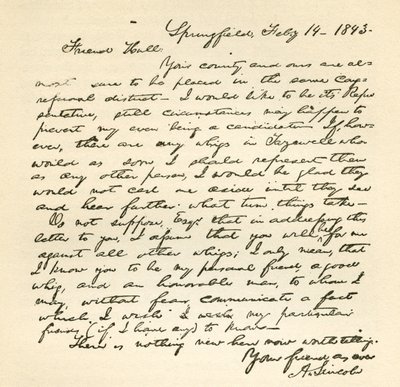 Springfield, Feby 14 - 1843.
Friend Hull:
Your county and ours are al-
most sure to be placed in the same Cong-
ressional district - I would like to be its Repre
sentative, still circumstances may happen to
prevent my even being a candidate - If, how-
ever, there are any whigs in Tazewell who
would as soon I should represent them
as any other person, I would be glad they
would not cast me aside until they see
and hear further what turn things take -
Do not suppose, Esqr. that in addressing this
letter to you, I assume that you will be for me
against all other whigs; I only mean, that
I know you to be my personal friend, a good
whig, and an honorable man, to whom I
may, without fear, communicate a fact
which I wish my particular
friends (if I have any) to know -
There is nothing new here now worth telling.
Your friend as ever
A. Lincoln